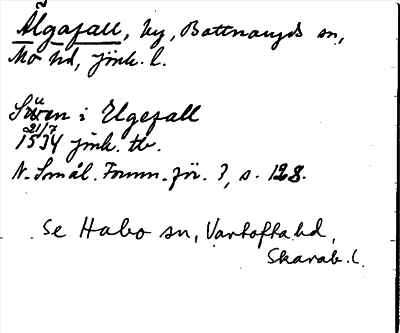 Älgafall, by, Bottnaryds sn,
Mo hd, jönk. l.
Swen i Elgefall
21/7
1534 jönk. tb.
N. Smål. Fornm. för. 3, s. 128.
se Habo sn, Vartofta hd,
Skarab. l.